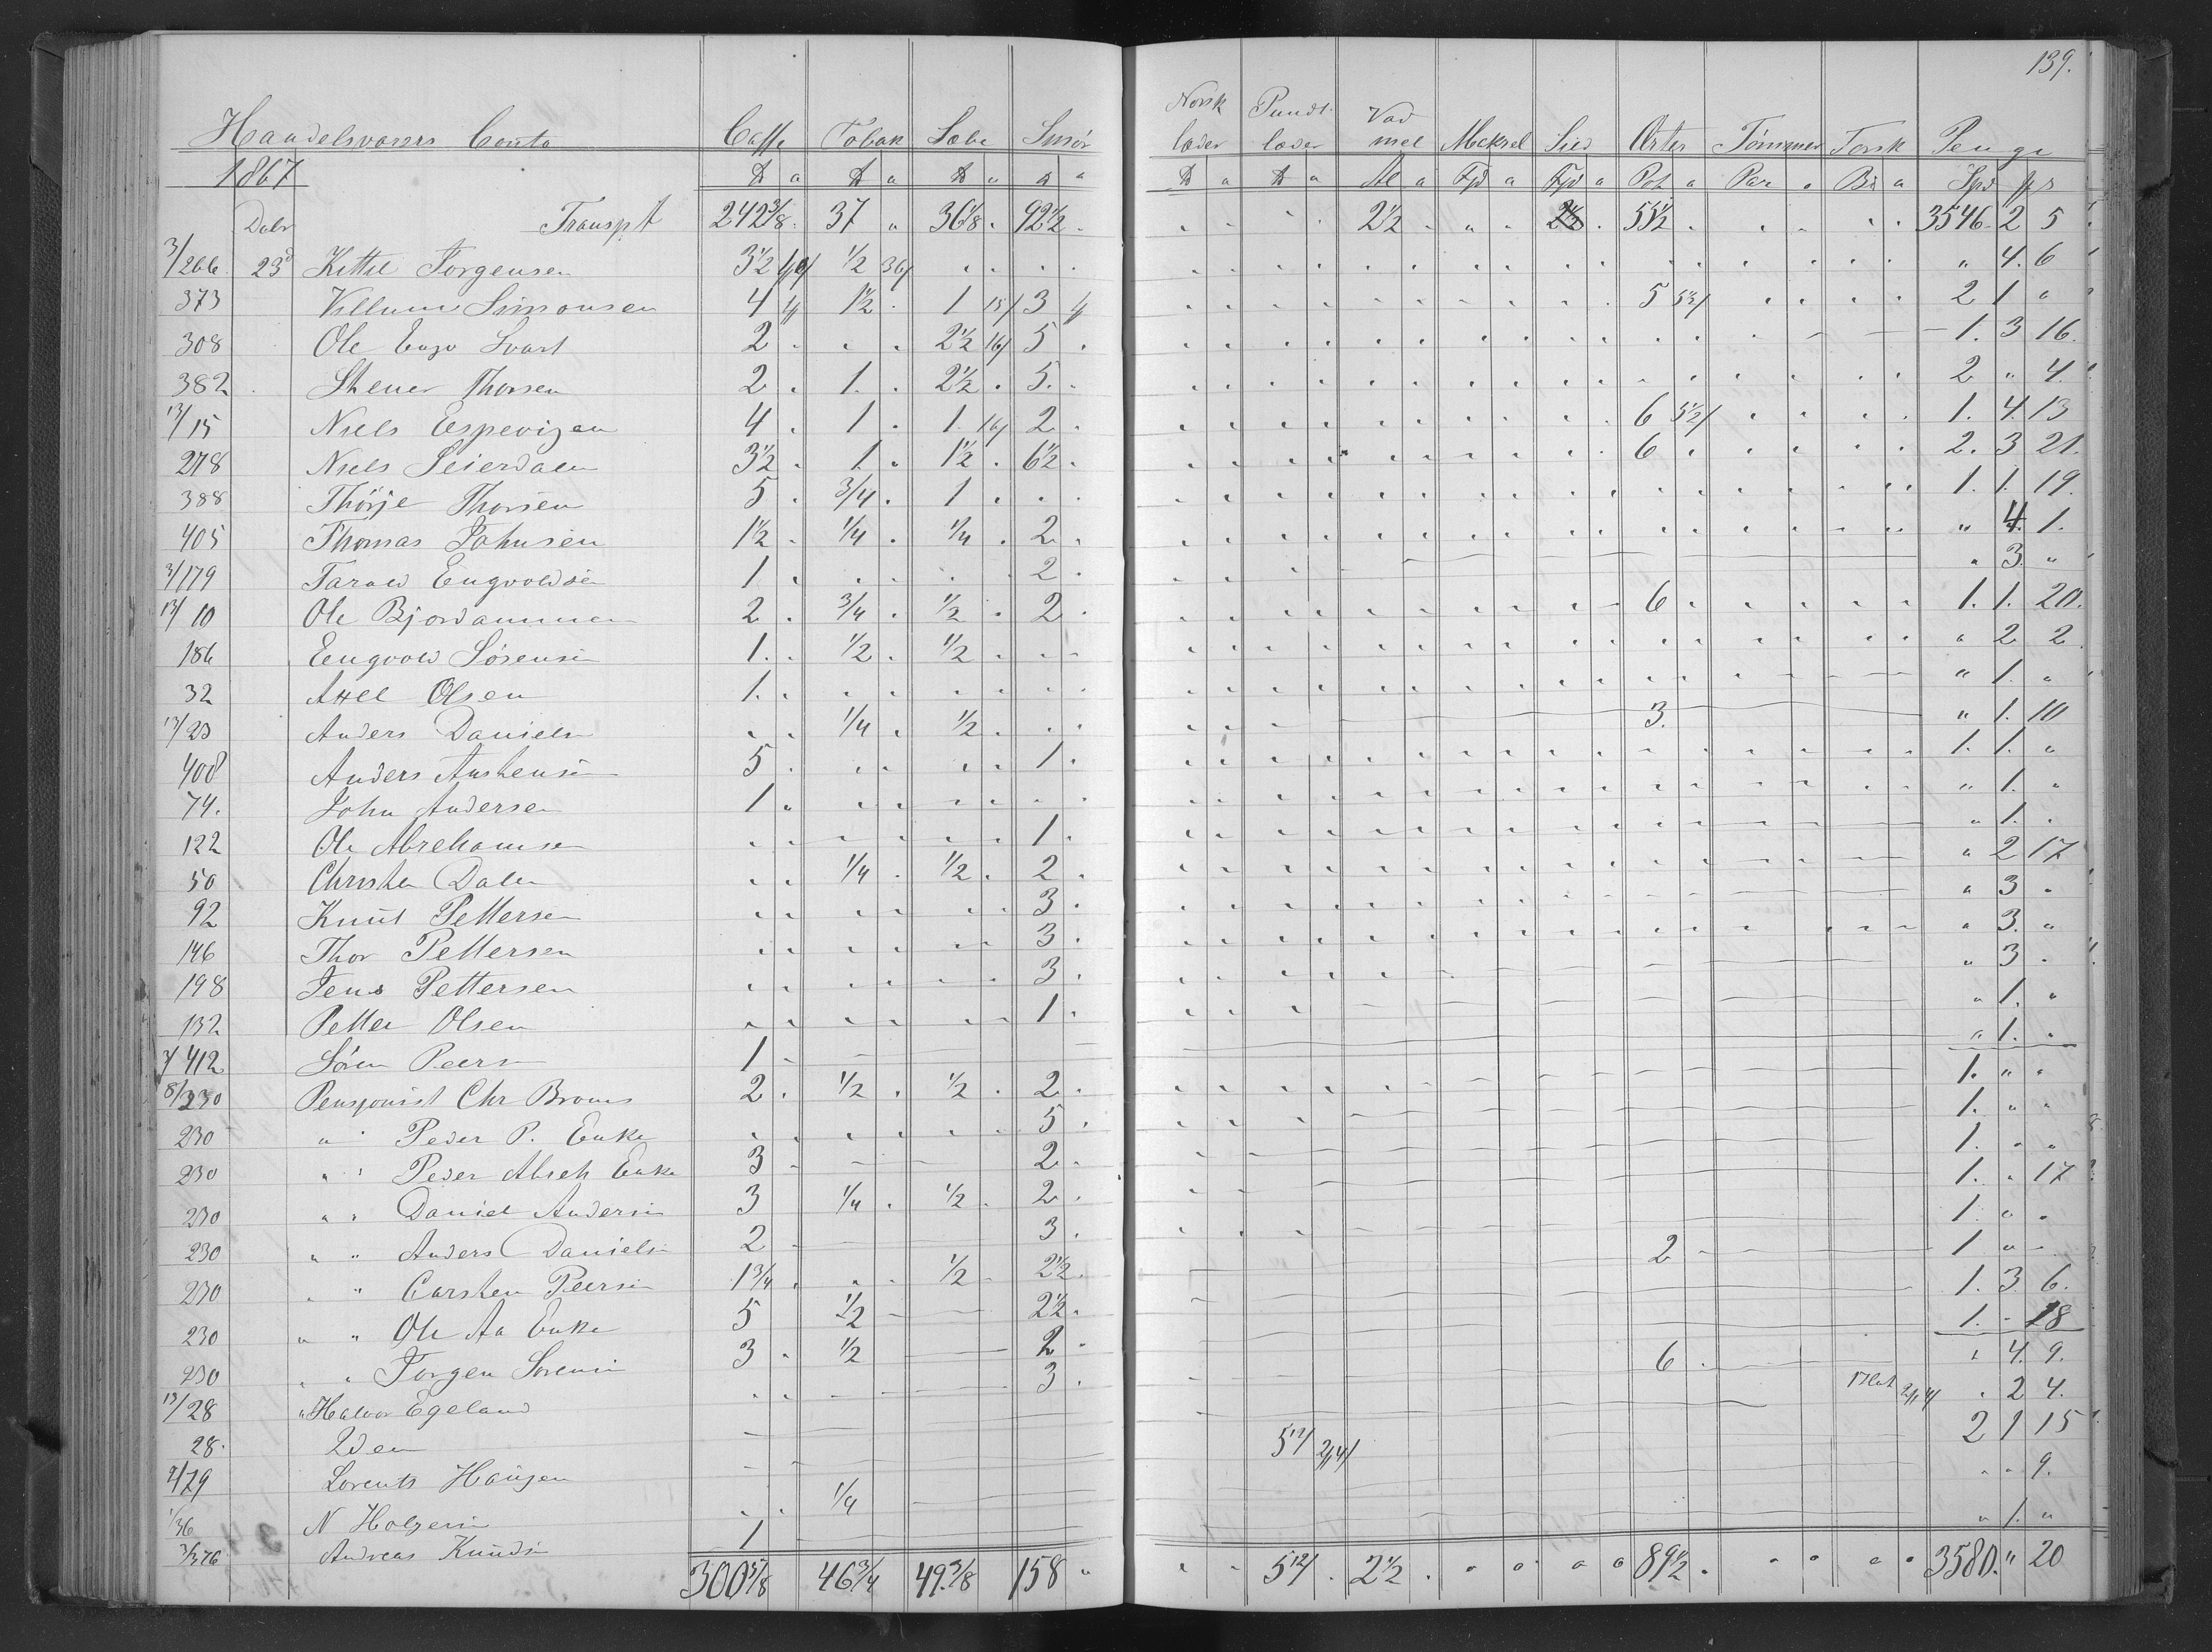 139.
Handelsvarers Conto Caffe Tobak Sæbe Smør Norsk læder Pundt læder Vad mel Mckrel Sild Ærter Tømmer Torsk Penge
1867 ℔ a ℔ a ℔ a ℔ a ℔ a ℔ a Al a Fjd a Fjd a Pot a Par a a Spd
Transpt 242 3/8 37 " 36 1/8 92 1/2 2 1/2 55 1/2 3546 2 5
3/266 23d Kittil Jorgensen 3 1/2 1/2 36/ " 4. 6
373 Villum Simonsen 4 1 1/2 1 15/ 3 5 2 1 "
308 Ole Svart 2 2 1/2 16/ 5 1. 3 16.
382 Stener Thorsen 2 1. 2 1/2 5. 2 " 4.
13/15 Niels Espevigen 4 1 1. 16/ 2 6 5 1/2/ 1. 4. 13
278 Niels Seierdalen 3 1/2 1. 1 1/2 6 1/2 6 2. 3 21.
388 Thorje Thorsen 5 3/4 1 1. 1. 19.
405 Thomas Johnsen 1 1/2 1/4 1/4 2 " 4. 1.
3/179 Tarald Engvoldsen 1 2 " 3. "
13/10 Ole Bjordammen 2 3/4 1/2 2 6 1. 1. 20.
186 Engvold Sørensen 1. 1/2 1/2 " 2 2
32 Axel Olsen 1. " 1. "
13/23 Anders Daniels 1/4 1/2 3. " 1. 10
408 Anders Austensen 5 1 1. 1. "
74. John Andersen 1 " 1. "
122 Ole Abrehamsen 1 " 1. "
50 Christen Dalen 1/4 1/2 2 " 2 17
92 Knut Pettersen 3 " 3 "
146 Thor Pettersen 3 " 3. "
198 Jens Pettersen 3 " 3 "
132 Petter Olsen 1 " 1. "
3/412 Søren Peersn 1 " 1. "
8/230 Pensjonist Chr Broms 2 1/2 1/2 2 1. " "
230 " " Peder P. Enke 5 1. " "
230 " " Peder Abreh Enke 3 2 1. " "
230 " " Daniel Andersen 3 1/4 1/2 2 1. " 17
230 " " Anders Danielsn 2 3 1. " "
230 " " Carsten Peersen 1 3/4 1/2 2 1/2 2 1 " "
230 " " Ole Aa Enke 5 1/2 2 1/2 1. 3. 6.
230 " " Jorgen Sorensen 3 1/2 2 1. " 18
13/28 " Halvor Egeland 3 6 " 4. 9.
28. Idem " 2 4.
9/79 Lorents Haugen 2 1 15
1/36 N Holgersen 1/4 " " 9.
3/376 Andreas Knudsn 1 " 1. "
300 5/8 46 3/4 49 3/8 158 " 2 1/2 89 1/2 3580. " 20